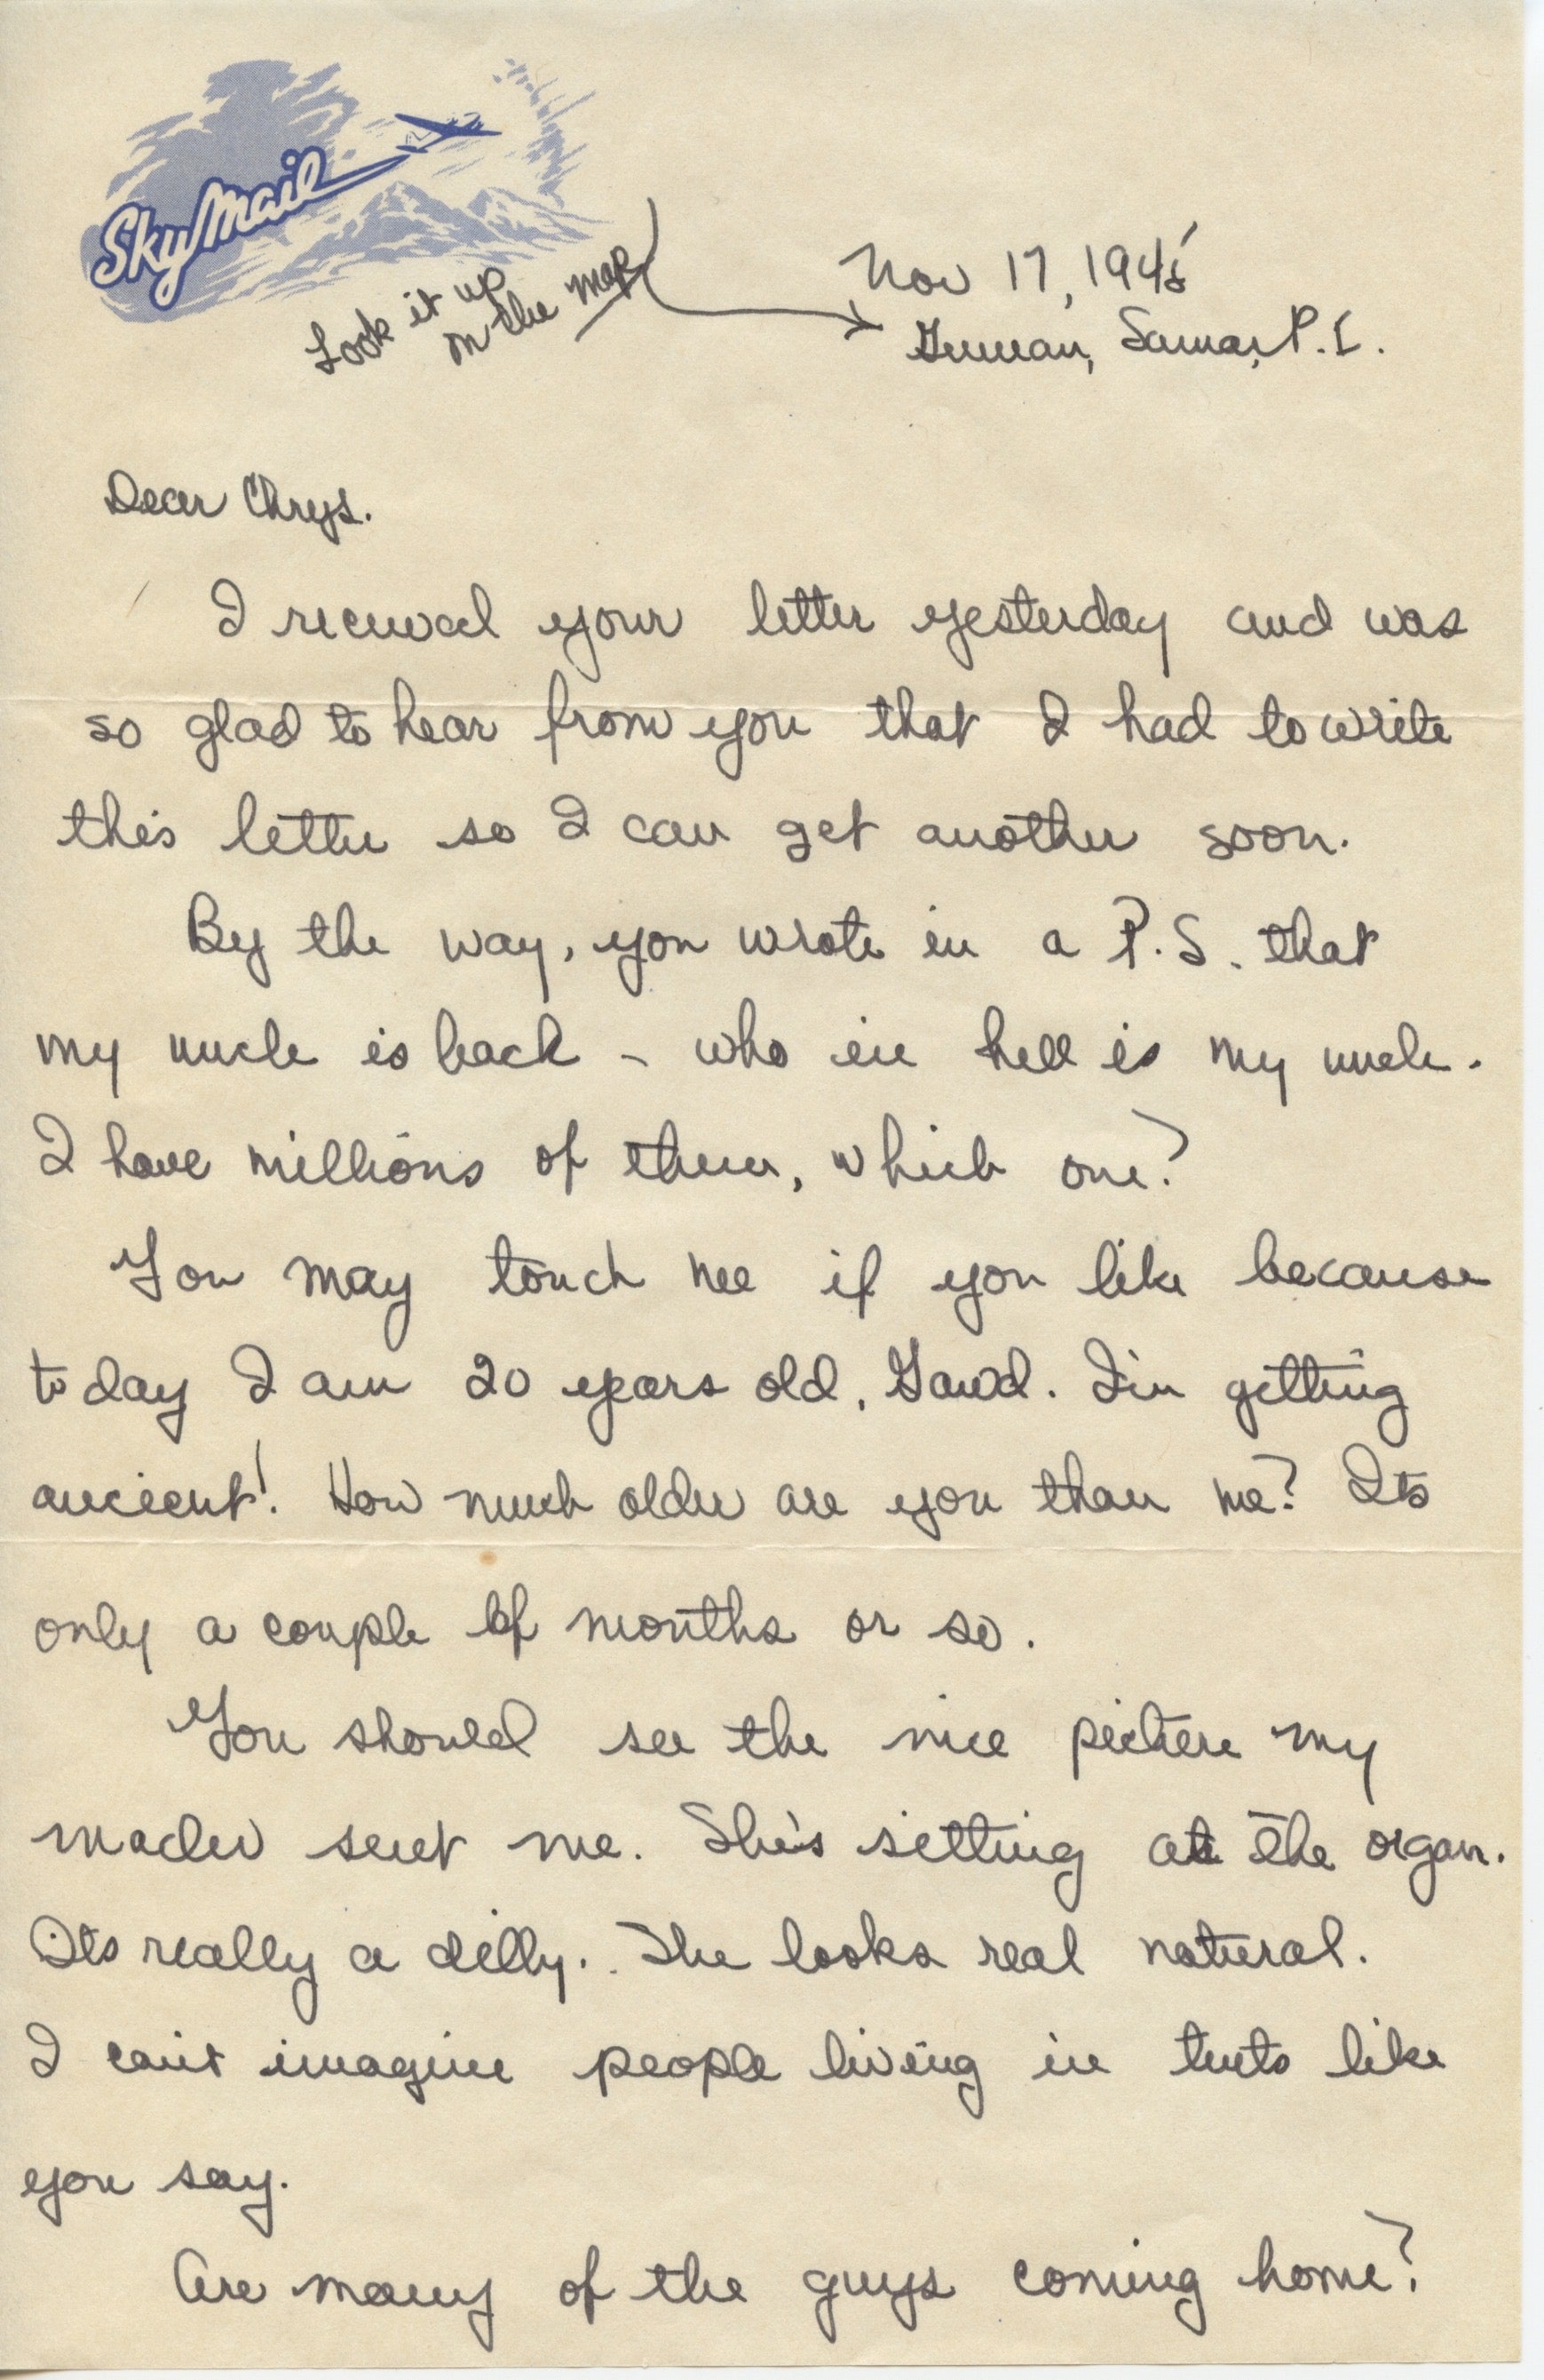 Sky Mail
Look it up
on the map
Nov 17, 1945
Guiuan, Samar, P.I.
Dear Chrys.
I recieved your letter yesterday and was
so glad to hear from you that I had to write
this letter so I can get another soon.
By the way, you wrote in a P.S. that
my uncle is back - who in hell is my uncle.
I have millions of them, which one?
You may touch me if you like because
today I am 20 years old. Gawd. I'm getting
ancient! How much older are you than me? Its
only a couple of months or so.
You should see the nice picture my
mader sent me. She's sitting at the organ.
Its really a dilly. She looks real natural.
I can't imagine people living in tents like
you say.
Are many of the guys coming home?